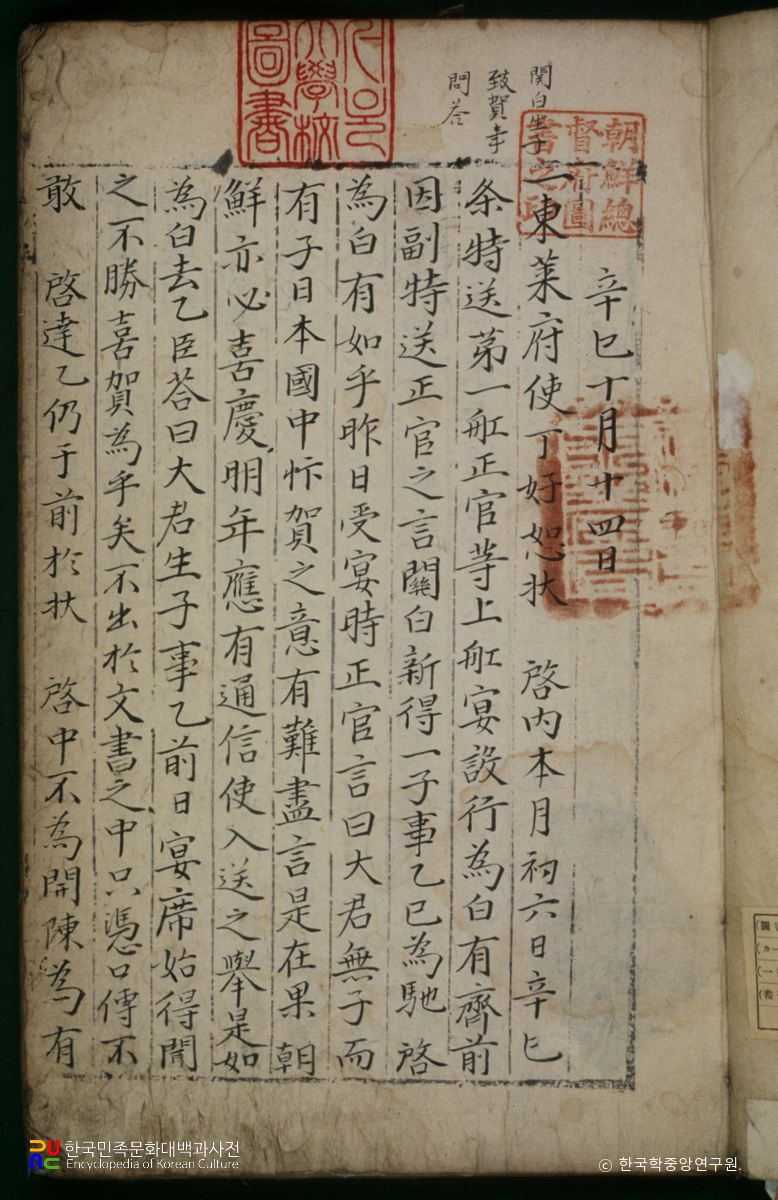 辛巳十月十四日
一東萊府使丁好恕狀 啓內本月初六日辛巳
条特送第一舡正官等上舡宴設行為白有齊前
因副特送正官之言關白新得一子事乙已為馳 啓
為白有如乎昨日受宴時正官言曰大君無子而
有子日本國中忭賀之意有難盡言是在果朝
鮮亦必喜慶明年應有通信使入送之舉是如
為白去乙臣答曰大君生子事乙前日宴席始得聞
之不勝喜賀為乎矣不出於文書之中只憑口傳不
敢 啓達乙仍于前於狀 啓中不為開陳為有
関白生子
致賀事
問答
朝鮮總
督府圖
書之印
大學校
圖書
한국민족문화대백과사전
Encyclopedia of Korean Culture
ⓒ 한국학중앙연구원.